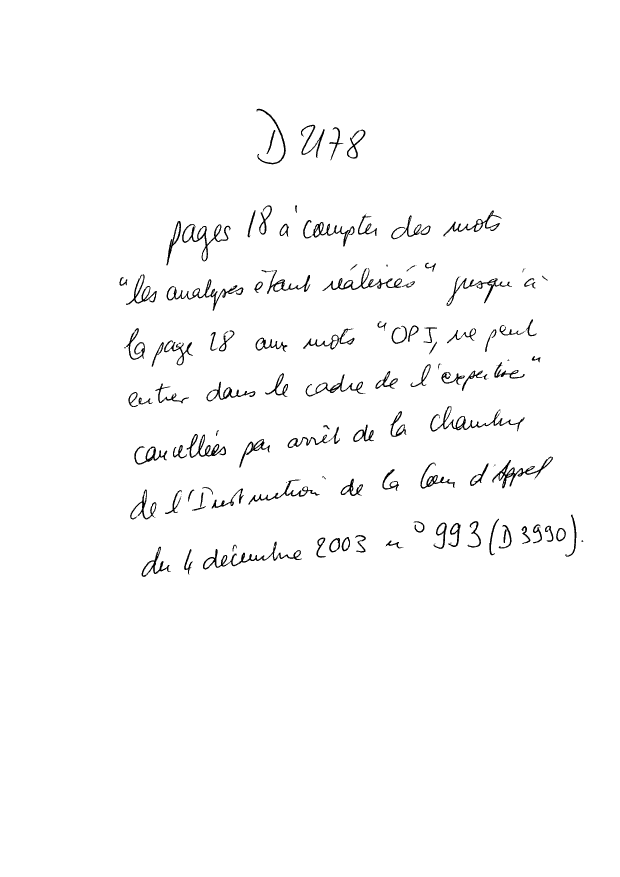 D 2178
pages 18 à compter des mots
"les analyses étant réalisées" jusqu'à
la page 28 aux mots "OPJ, ne peut
entrer dans le cadre de l'expertise"
cancellées par arrêt de la chambre
de l'Instruction de la Cour d'Appel
du 4 décembre 2003 n° 993 (D 3990).